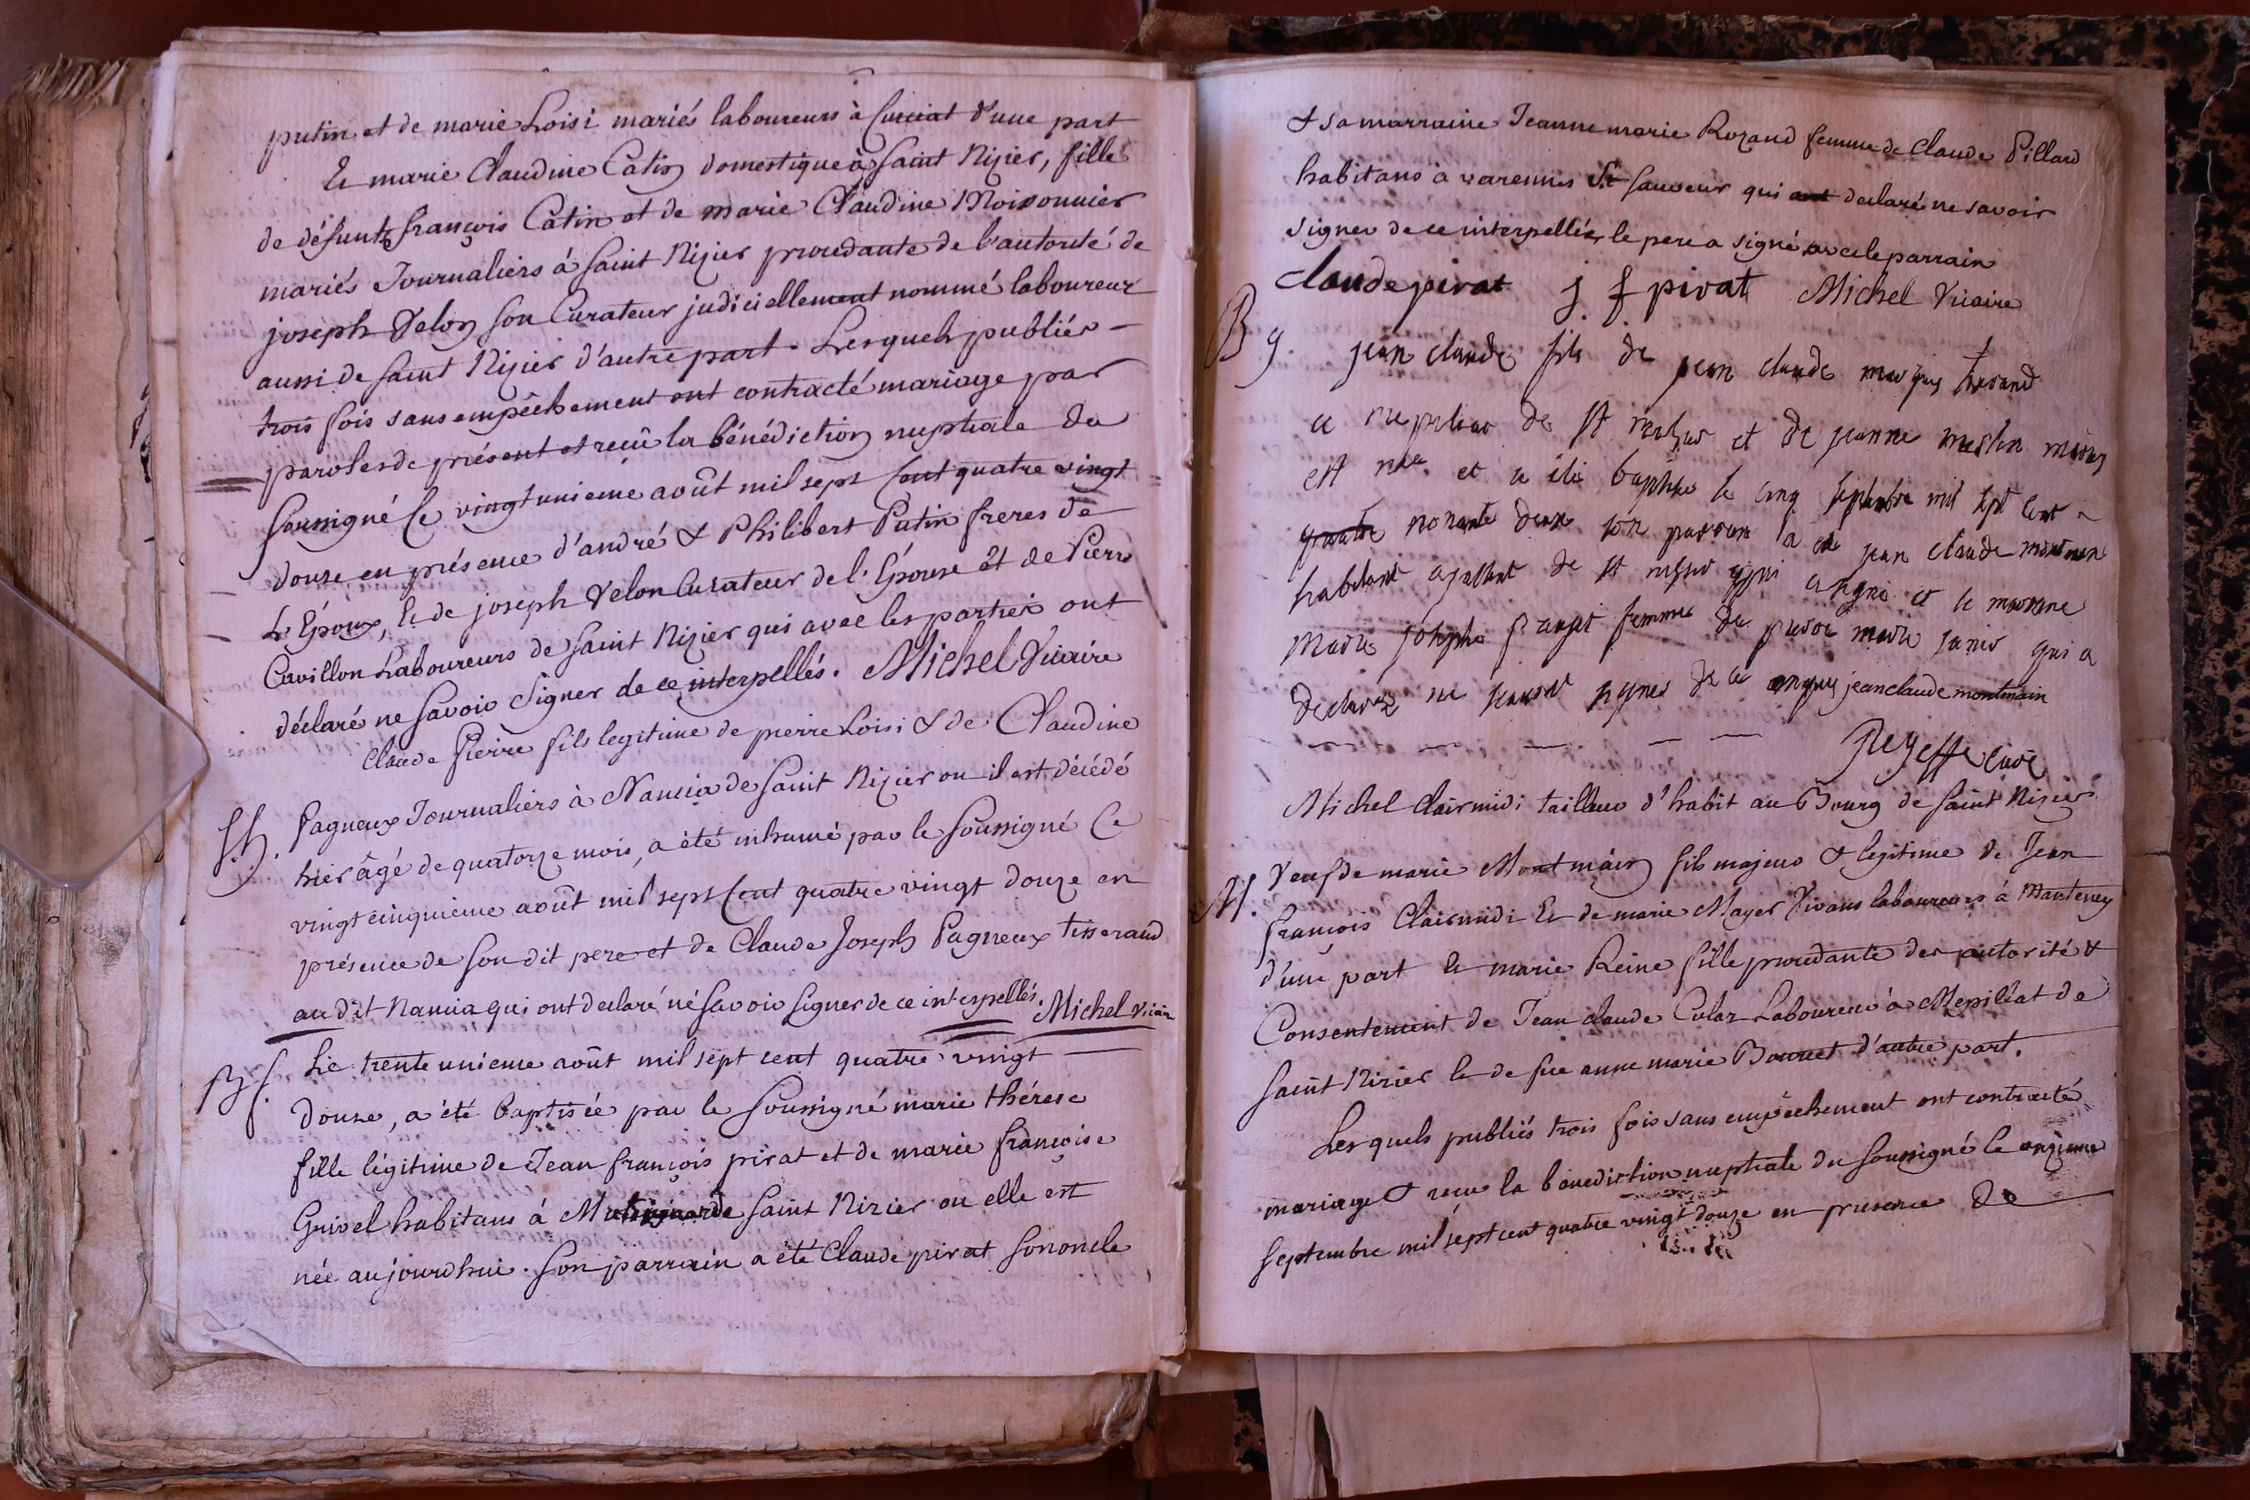 putin et de marie Loisi mariés laboureurs à Cuiciat d'une part
Et marie Claudine Catin domestique à Saint Nizier, fille
de défunts françois Catin et de marie Claudine Moissonnier
mariés Journaliers à Saint Nizier procedante de l'autorité de
joseph Velon son Curateur judiciellement nommé laboureur
aussi de Saint Nizier d'autre part. Lesquels publiés
trois fois sans empêchement ont contracté mariage par
paroles de présent et reçu la bénédiction nuptiale du
Soussigné Ce vingt unieme août mil sept Cent quatre vingt
douze en présence d'andré & Philibert Putin freres de
L'Epoux, Et de joseph Velon Curateur de l'Epouse Et de Pierre
Cavillon Laboureurs de Saint Nizier qui avec les parties ont
déclaré ne savoir signer de ce interpellés. Michel Vicaire
Claude Pierre fils legitime de pierre Loisi & de Claudine
S.h. Pagneux Journaliers à Nancia de Saint Nizier ou il est décédé
hier âgé de quatorze mois, a été inhumé par le Soussigné Ce
vingt cinquieme août mil sept Cent quatre vingt douze en
présence de son dit pere et de Claude Joseph Pagneux tisserand
au dit Nancia qui ont declaré né savoir signer de ce interpellés. Michel Vicair
B f. Le trente unieme août mil sept cent quatre vingt
Douze, a été baptisée par le Soussigné marie thérese
fille légitime de Jean françois pirat et de marie françoise
Guivel habitans à de Saint Nizier ou elle est
née aujourdhui. Son parrain a été Claude pirat son oncle
& sa marraine Jeanne marie Rozand femme de Claude Pillard
habitans à varennes St Sauveur qui ont declaré ne savoir
signer de ce interpellés, le pere a signé avec le parrain
Claude pirat j f pirat Michel Vicaire
B g. jean claude fils de jean claude tisserand
de St et de jeanne mariés
est née et a été baptise le cinq septembre mil sept cent
quatre nonante deux son parrein a été jean claude montmein
habitant de St qui a signé et la mareine
marie josephe femme de pierre marie janin qui a
declarée ne savoir signer de ce enquis jean claude montmain
curé
Michel Clairmidi tailleur d'habit au Bourg de Saint Nizier
M. Veuf de marie Montmain fils majeur & legitime de Jean
François Clairmidi Et de marie Mayer Vivans laboureurs à Manteney
d'une part Et marie Reine fille procedante des autorité &
Consentement de Jean claude Culaz Laboureur à Mepilliat de
Saint Nizier et de feue anne marie Bourret d'autre part.
Lesquels publiés trois fois sans empêchement ont contracté
mariage & reçu la benediction nuptiale du Soussigné le onzieme
Septembre mil sept cent quatre vingt douze en presence de